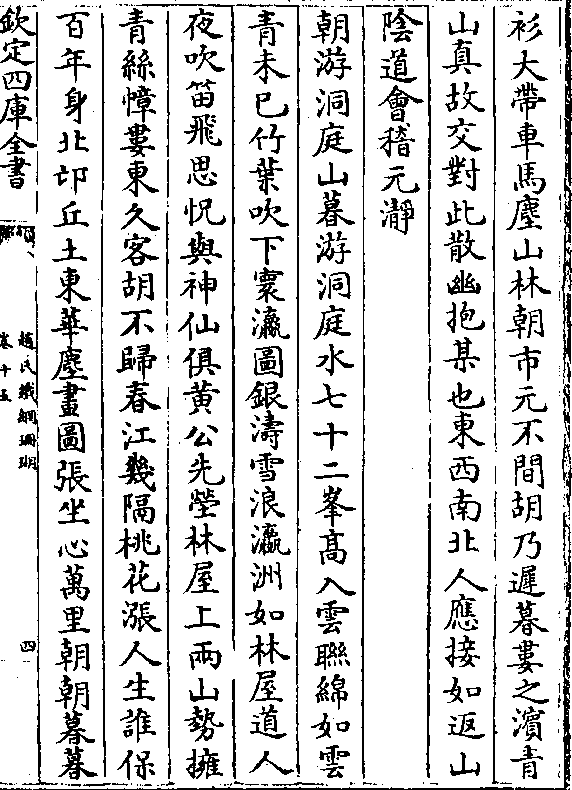 衫大帶車馬塵山林朝市元不間胡乃遲暮婁之濵青
山真故交對此散幽抱某也東西南北人應接如返山
陰道會稽元瀞
朝游洞庭山暮游洞庭水七十二峯髙入雲聯綿如雲
青未已竹葉吹下寰瀛圖銀濤雪浪瀛洲如林屋道人
夜吹笛飛思怳與神仙俱黄公先塋林屋上兩山勢擁
青絲幛婁東久客胡不歸春江幾隔桃花漲人生誰保
百年身北邙丘土東華塵畫圖張坐心萬里朝朝暮暮
欽定四庫全書
趙氏鐵網珊瑚
卷十五
四